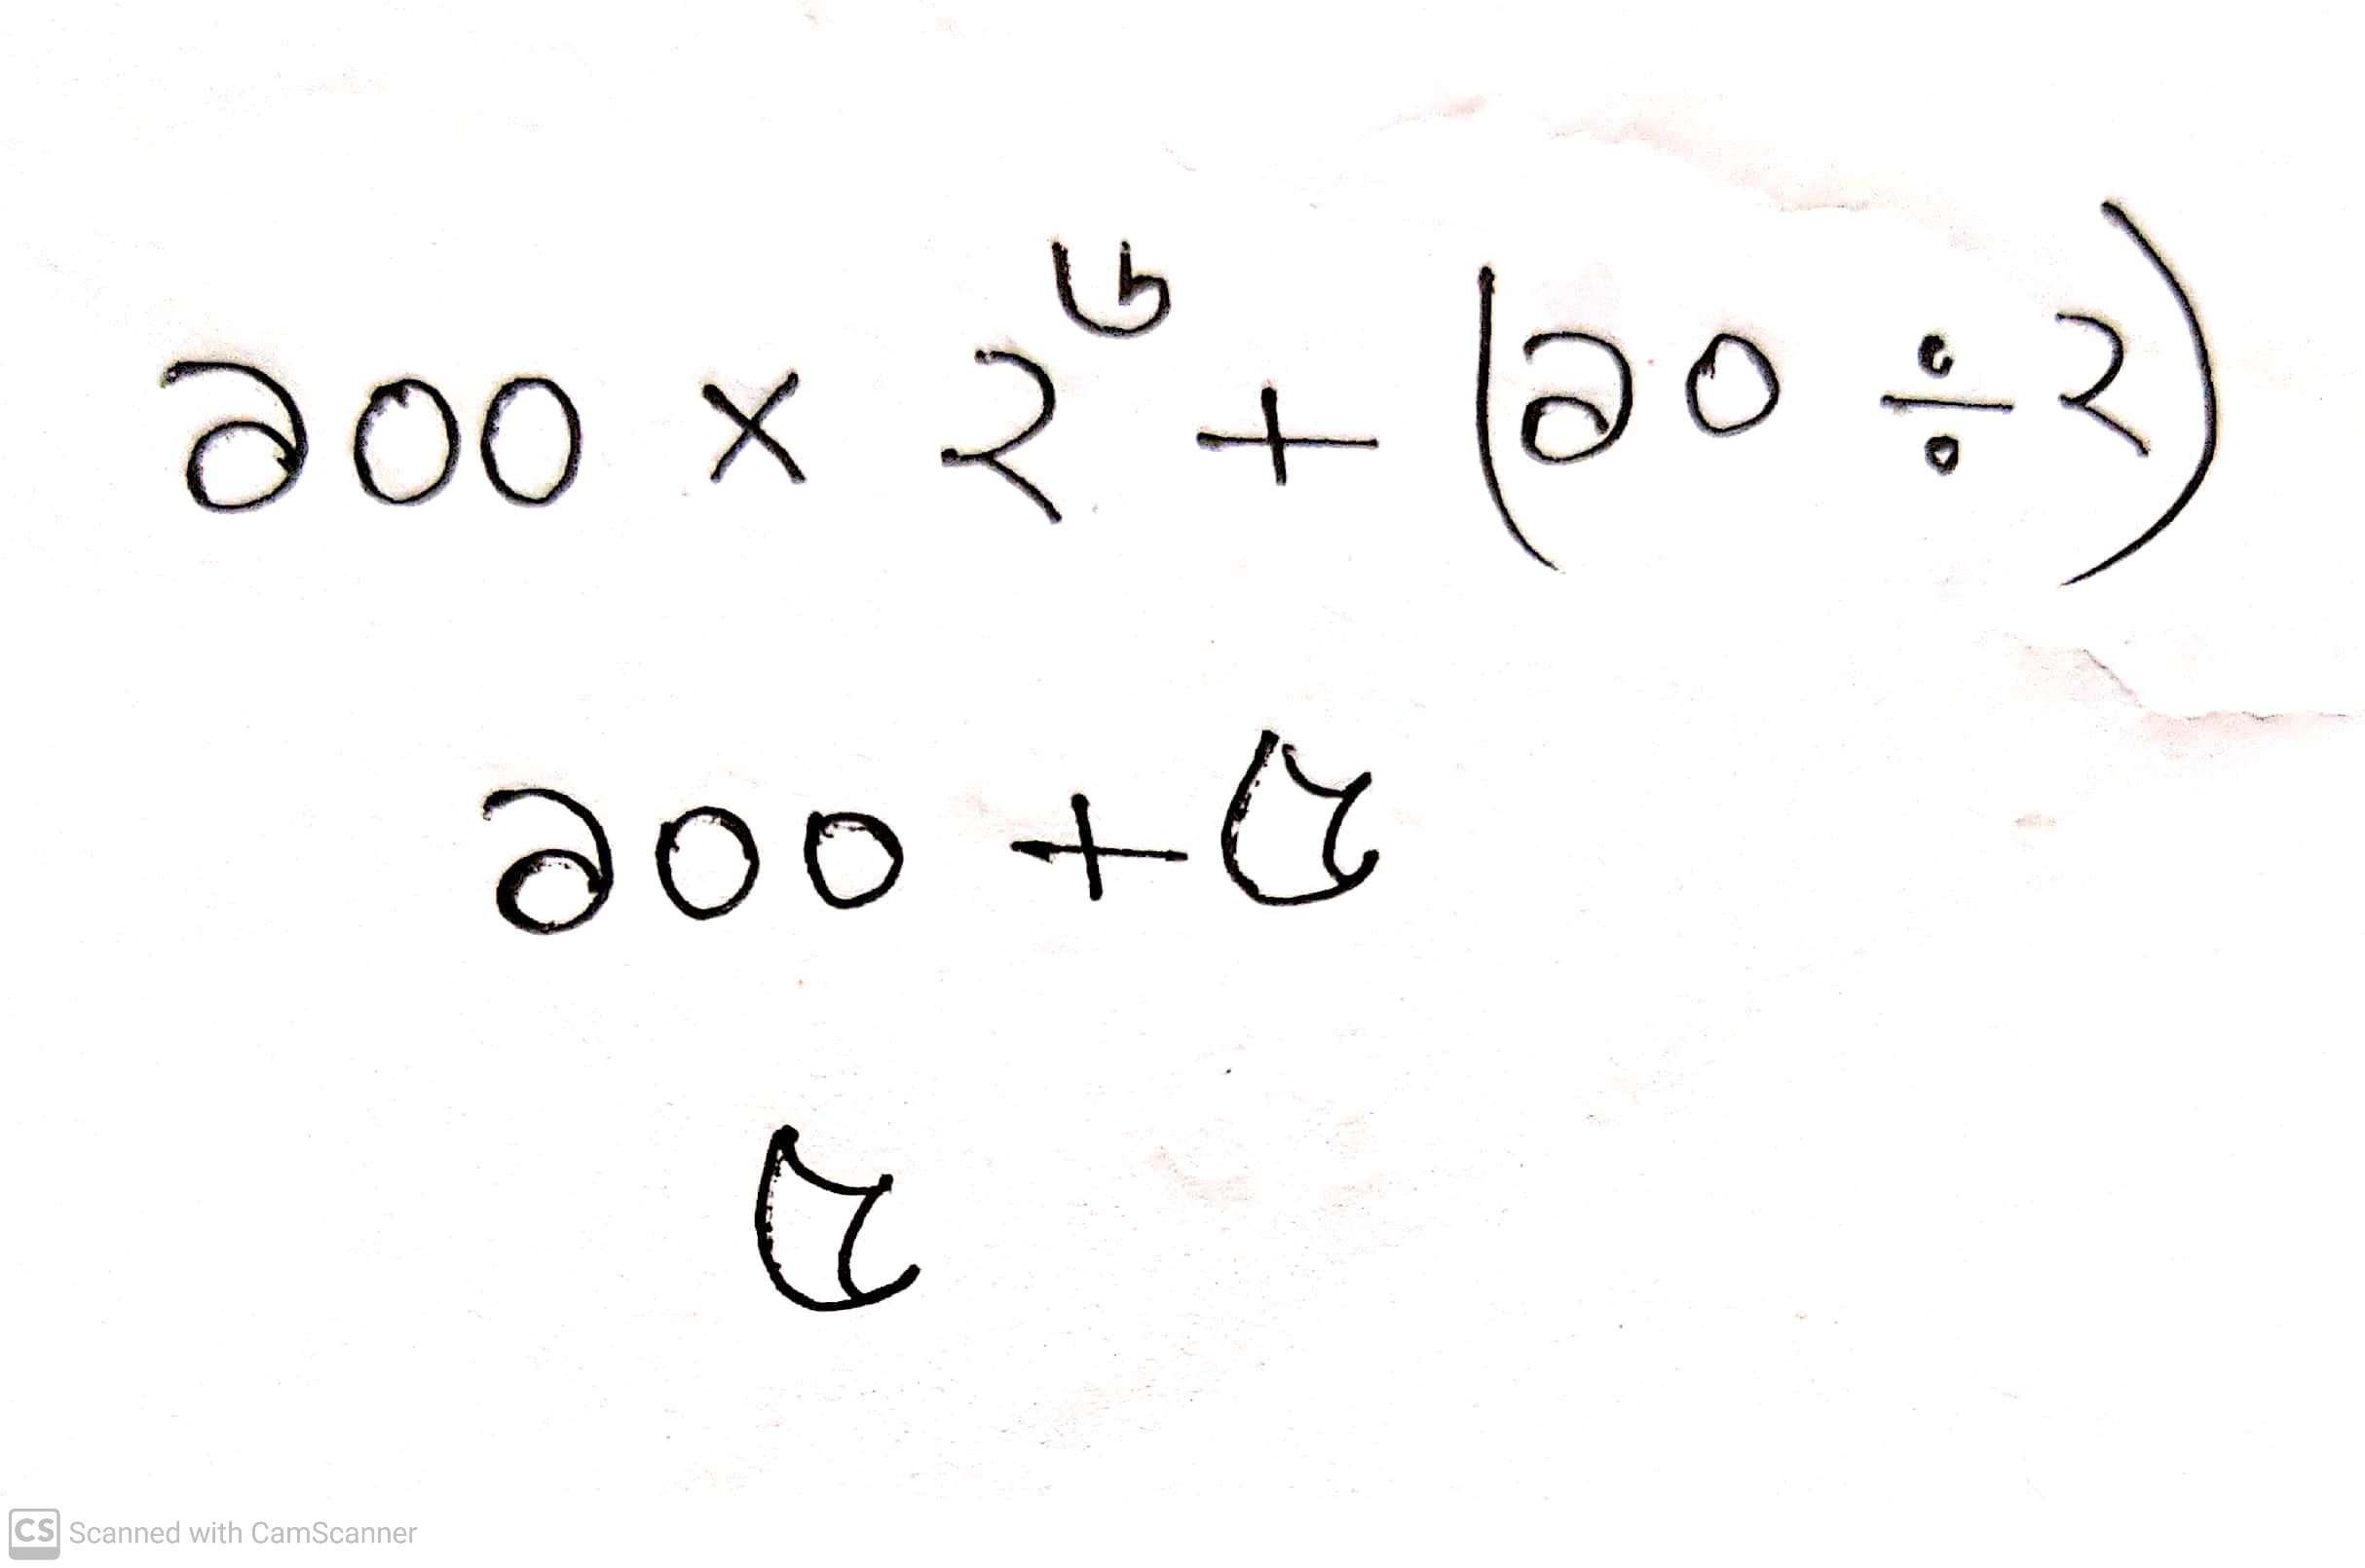 ১০০ × ২^৬ + (১০ ÷ ২)
১০০ + ৫
৫
CS Scanned with CamScanner